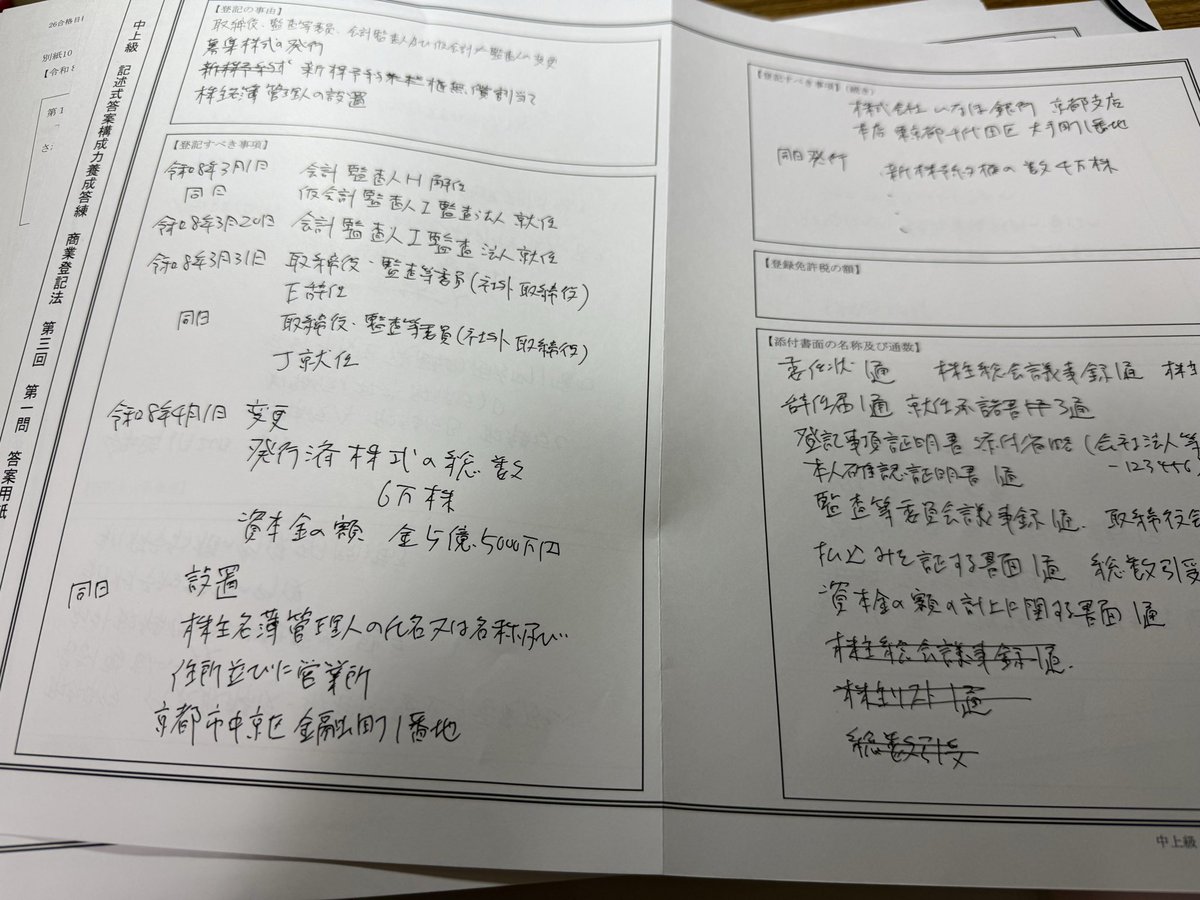 26合格目
別紙10
【令和8
第1
さ
中上級 記述式答案構成力養成答練 商業登記法 第三回 第一問 答案用紙
【登記の事由】
取締役・監査等委員、会計監査人及び仮会計監査人の変更
募集株式の発行
新株予約権無償割当て
株主名簿管理人の設置
【登記すべき事項】
令和8年3月1日 会計監査人H 解任
同日 仮会計監査人I監査法人 就任
令和8年3月20日 会計監査人I監査法人就任
令和8年3月31日 取締役・監査等委員(社外取締役)
E辞任
同日 取締役・監査等委員(社外取締役)
J就任
令和8年4月1日 変更
発行済株式の総数
6万株
資本金の額 金5億5000万円
同日 設置
株主名簿管理人の氏名又は名称及び
住所並びに営業所
京都市中京区金融町1番地
【登記すべき事項】(続き)
株式会社いなほ銀行 京都支店
本店 東京都千代田区大手町1番地
同日発行 新株予約権の数 4万株
【登録免許税の額】
【添付書面の名称及び通数】
委任状 1通 株主総会議事録 1通 株主
辞任届 1通 就任承諾書 3通
登記事項証明書 添付省略(会社法人等
本人確認証明書 1通
監査等委員会議事録 1通 取締役会
払込みを証する書面 1通 総数引受
資本金の額の計上に関する書面 1通
株主総会議事録 1通
株主リスト 1通
総数引受
中上級